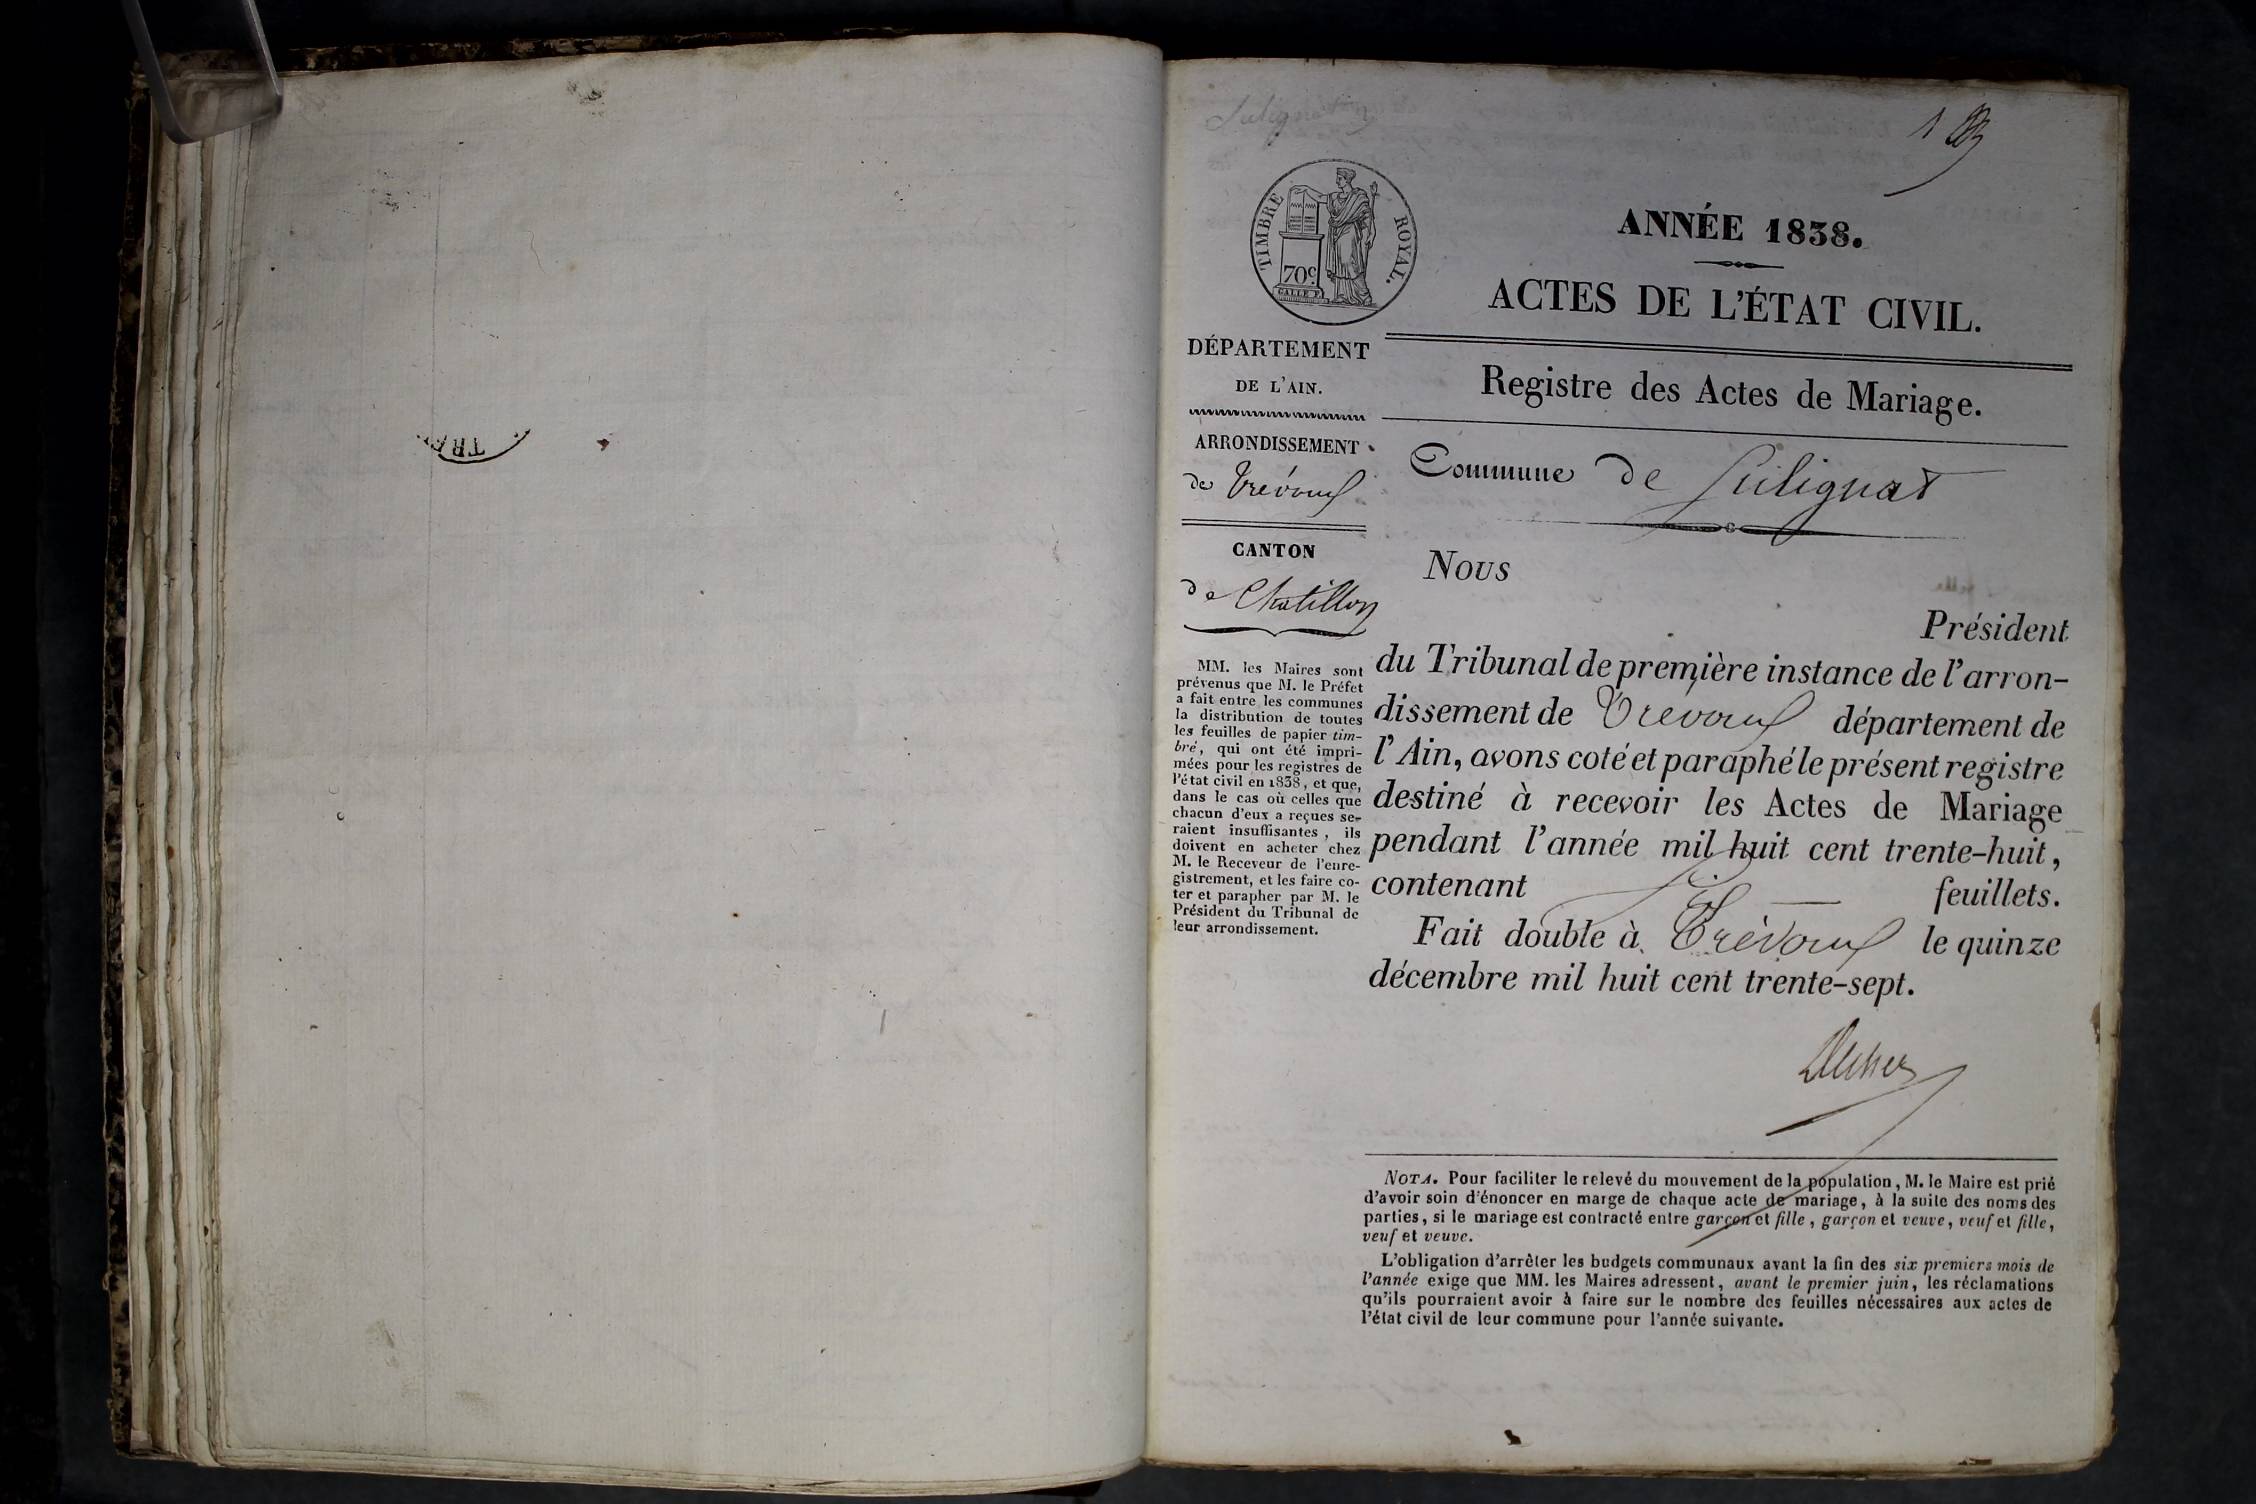 TRE
Sulignat
1
TIMBRE ROYAL.
70c
GALLE F.
ANNÉE 1838.
ACTES DE L'ÉTAT CIVIL.
DÉPARTEMENT
DE L'AIN.
Registre des Actes de Mariage.
ARRONDISSEMENT
de Trévoux
Commune de Sulignat
CANTON
de Chatillon
MM. les Maires sont
prévenus que M. le Préfet
a fait entre les communes
la distribution de toutes
les feuilles de papier tim-
bré, qui ont été impri-
mées pour les registres de
l'état civil en 1838, et que,
dans le cas où celles que
chacun d'eux a reçues se-
raient insuffisantes, ils
doivent en acheter chez
M. le Receveur de l'enre-
gistrement, et les faire co-
ter et parapher par M. le
Président du Tribunal de
leur arrondissement.
Nous
Président
du Tribunal de première instance de l'arron-
dissement de Trevoux département de
l'Ain, avons coté et paraphé le présent registre
destiné à recevoir les Actes de Mariage
pendant l'année mil huit cent trente-huit,
contenant feuillets.
Fait double à Trévoux le quinze
décembre mil huit cent trente-sept.
NOTA. Pour faciliter le relevé du mouvement de la population, M. le Maire est prié
d'avoir soin d'énoncer en marge de chaque acte de mariage, à la suite des noms des
parties, si le mariage est contracté entre garçon et fille, garçon et veuve, veuf et fille,
veuf et veuve.
L'obligation d'arrêter les budgets communaux avant la fin des six premiers mois de
l'année exige que MM. les Maires adressent, avant le premier juin, les réclamations
qu'ils pourraient avoir à faire sur le nombre des feuilles nécessaires aux actes de
l'état civil de leur commune pour l'année suivante.